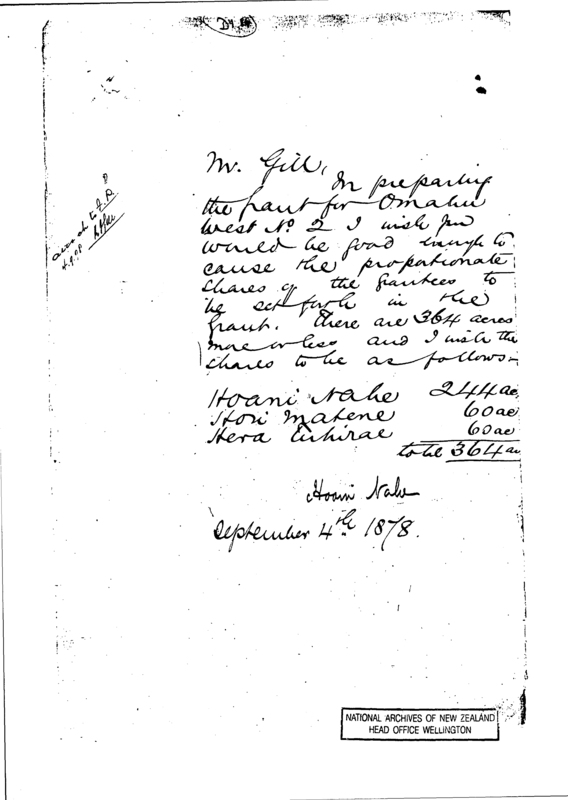 Mr. Gill,
In preparing
the grant for Omahu
West No 2 I wish you
would be good enough to
cause the proportionate
shares of the Grantees to
be set forth in the
Grant. There are 364 acres
more or less and I wish the
shares to be as follows:-
Hoani Nahe 244 ac
Hori Matene 60 ac
Hera 60 ac
total 364 ac
Hoani Nahe
September 4th 1878.
NATIONAL ARCHIVES OF NEW ZEALAND
HEAD OFFICE WELLINGTON